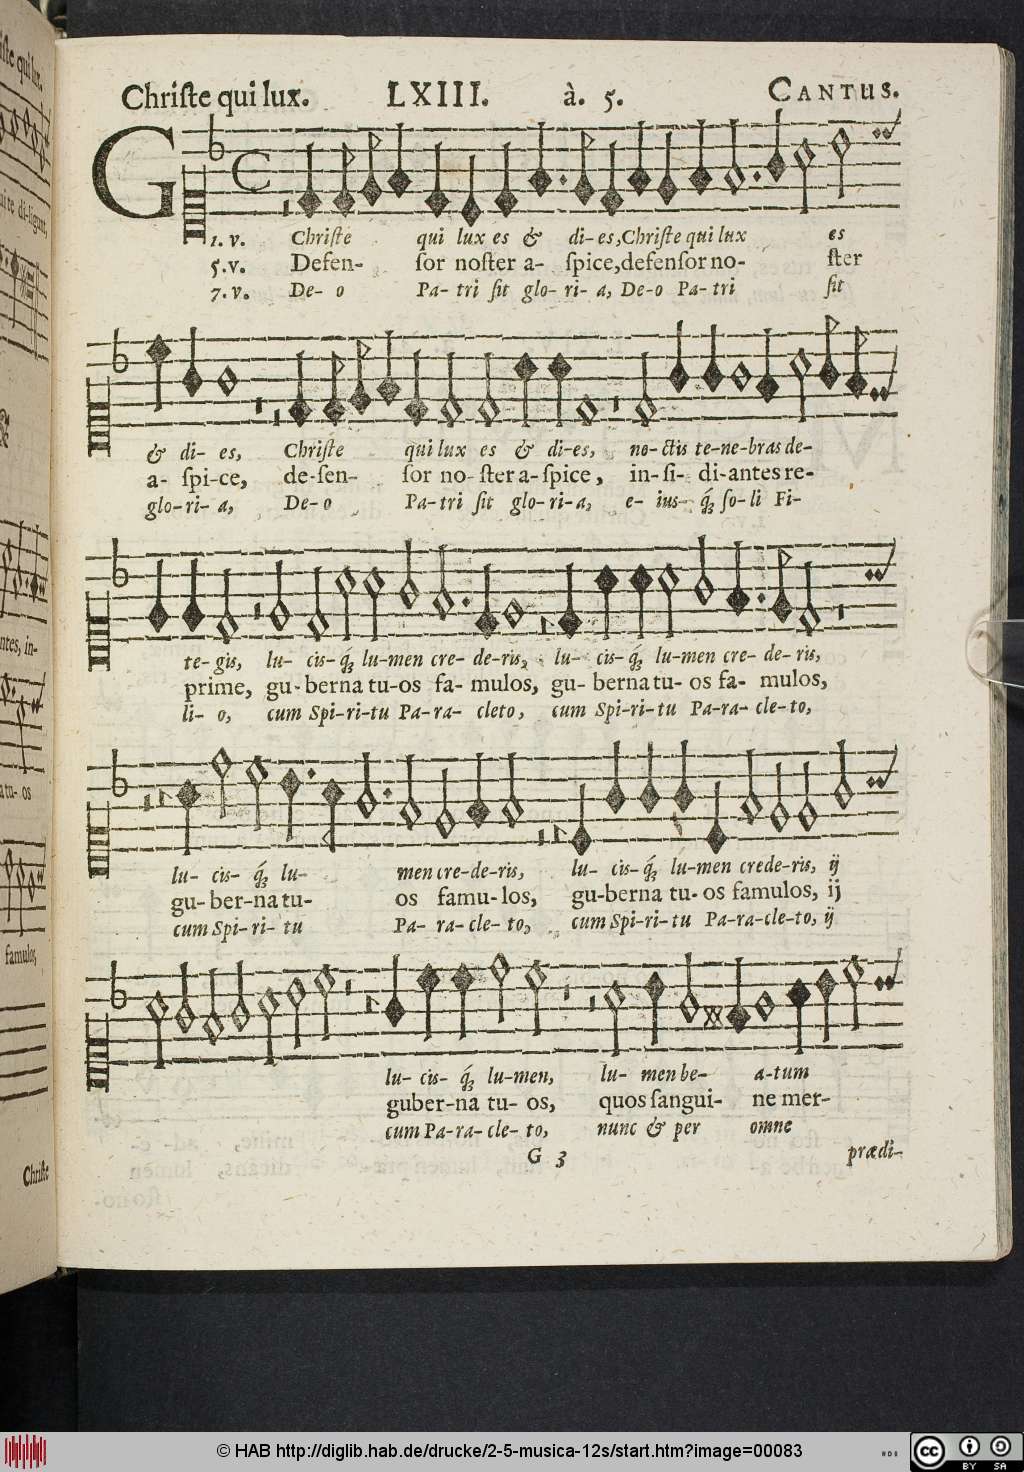 Chriſte qui lux. LXIII. à. 5. CANTUS.
G
1. v. Chriſte qui lux es & di- es,Chriſte qui lux es
5. v. Defen- ſor noſter a- ſpice,defenſor no- ſter
7. v. De- o Pa- tri ſit glo- ri- a, De-o Pa- tri ſit
& di- es, Chriſte qui lux es & di-es, no- ctis te-ne-bras de-
a- ſpi-ce, de-fen- ſor no- ſter a- ſpice, in- ſi- di-antes re-
glo- ri- a, De- o Pa- tri ſit glo- ri-a, e- ius- q́ʒ ſo- li Fi-
te- gis, lu- cis- q́ʒ lu-men cre- de-ris, lu- cis- q́ʒ lu-men cre- de- ris,
prime, gu- berna tu-os fa- mulos, gu- berna tu- os fa- mulos,
li- o, cum Spi-ri-tu Pa-ra- cleto, cum Spi-ri-tu Pa-ra- cle-to,
lu- cis- q́ʒ lu- men cre-de-ris, lu- cis- q́ʒ lu-men crede-ris, ij
gu- ber-na tu- os famu-los, gu-berna tu- os famulos, ij
cum Spi- ri- tu Pa- ra- cle- to, cum Spi- ri- tu Pa-ra-cle-to, ij
lu- cis- q́ʒ lu-men, lu- men be- a-tum
guber-na tu- os, quos ſangui- ne mer-
cum Pa-ra- cle- to, nunc & per omne
G 3 prædi-
ntes, in-
a tu- os
famulos,
Chriſte
© HAB http://diglib.hab.de/drucke/2-5-musica-12s/start.htm?image=00083
cc BY SA